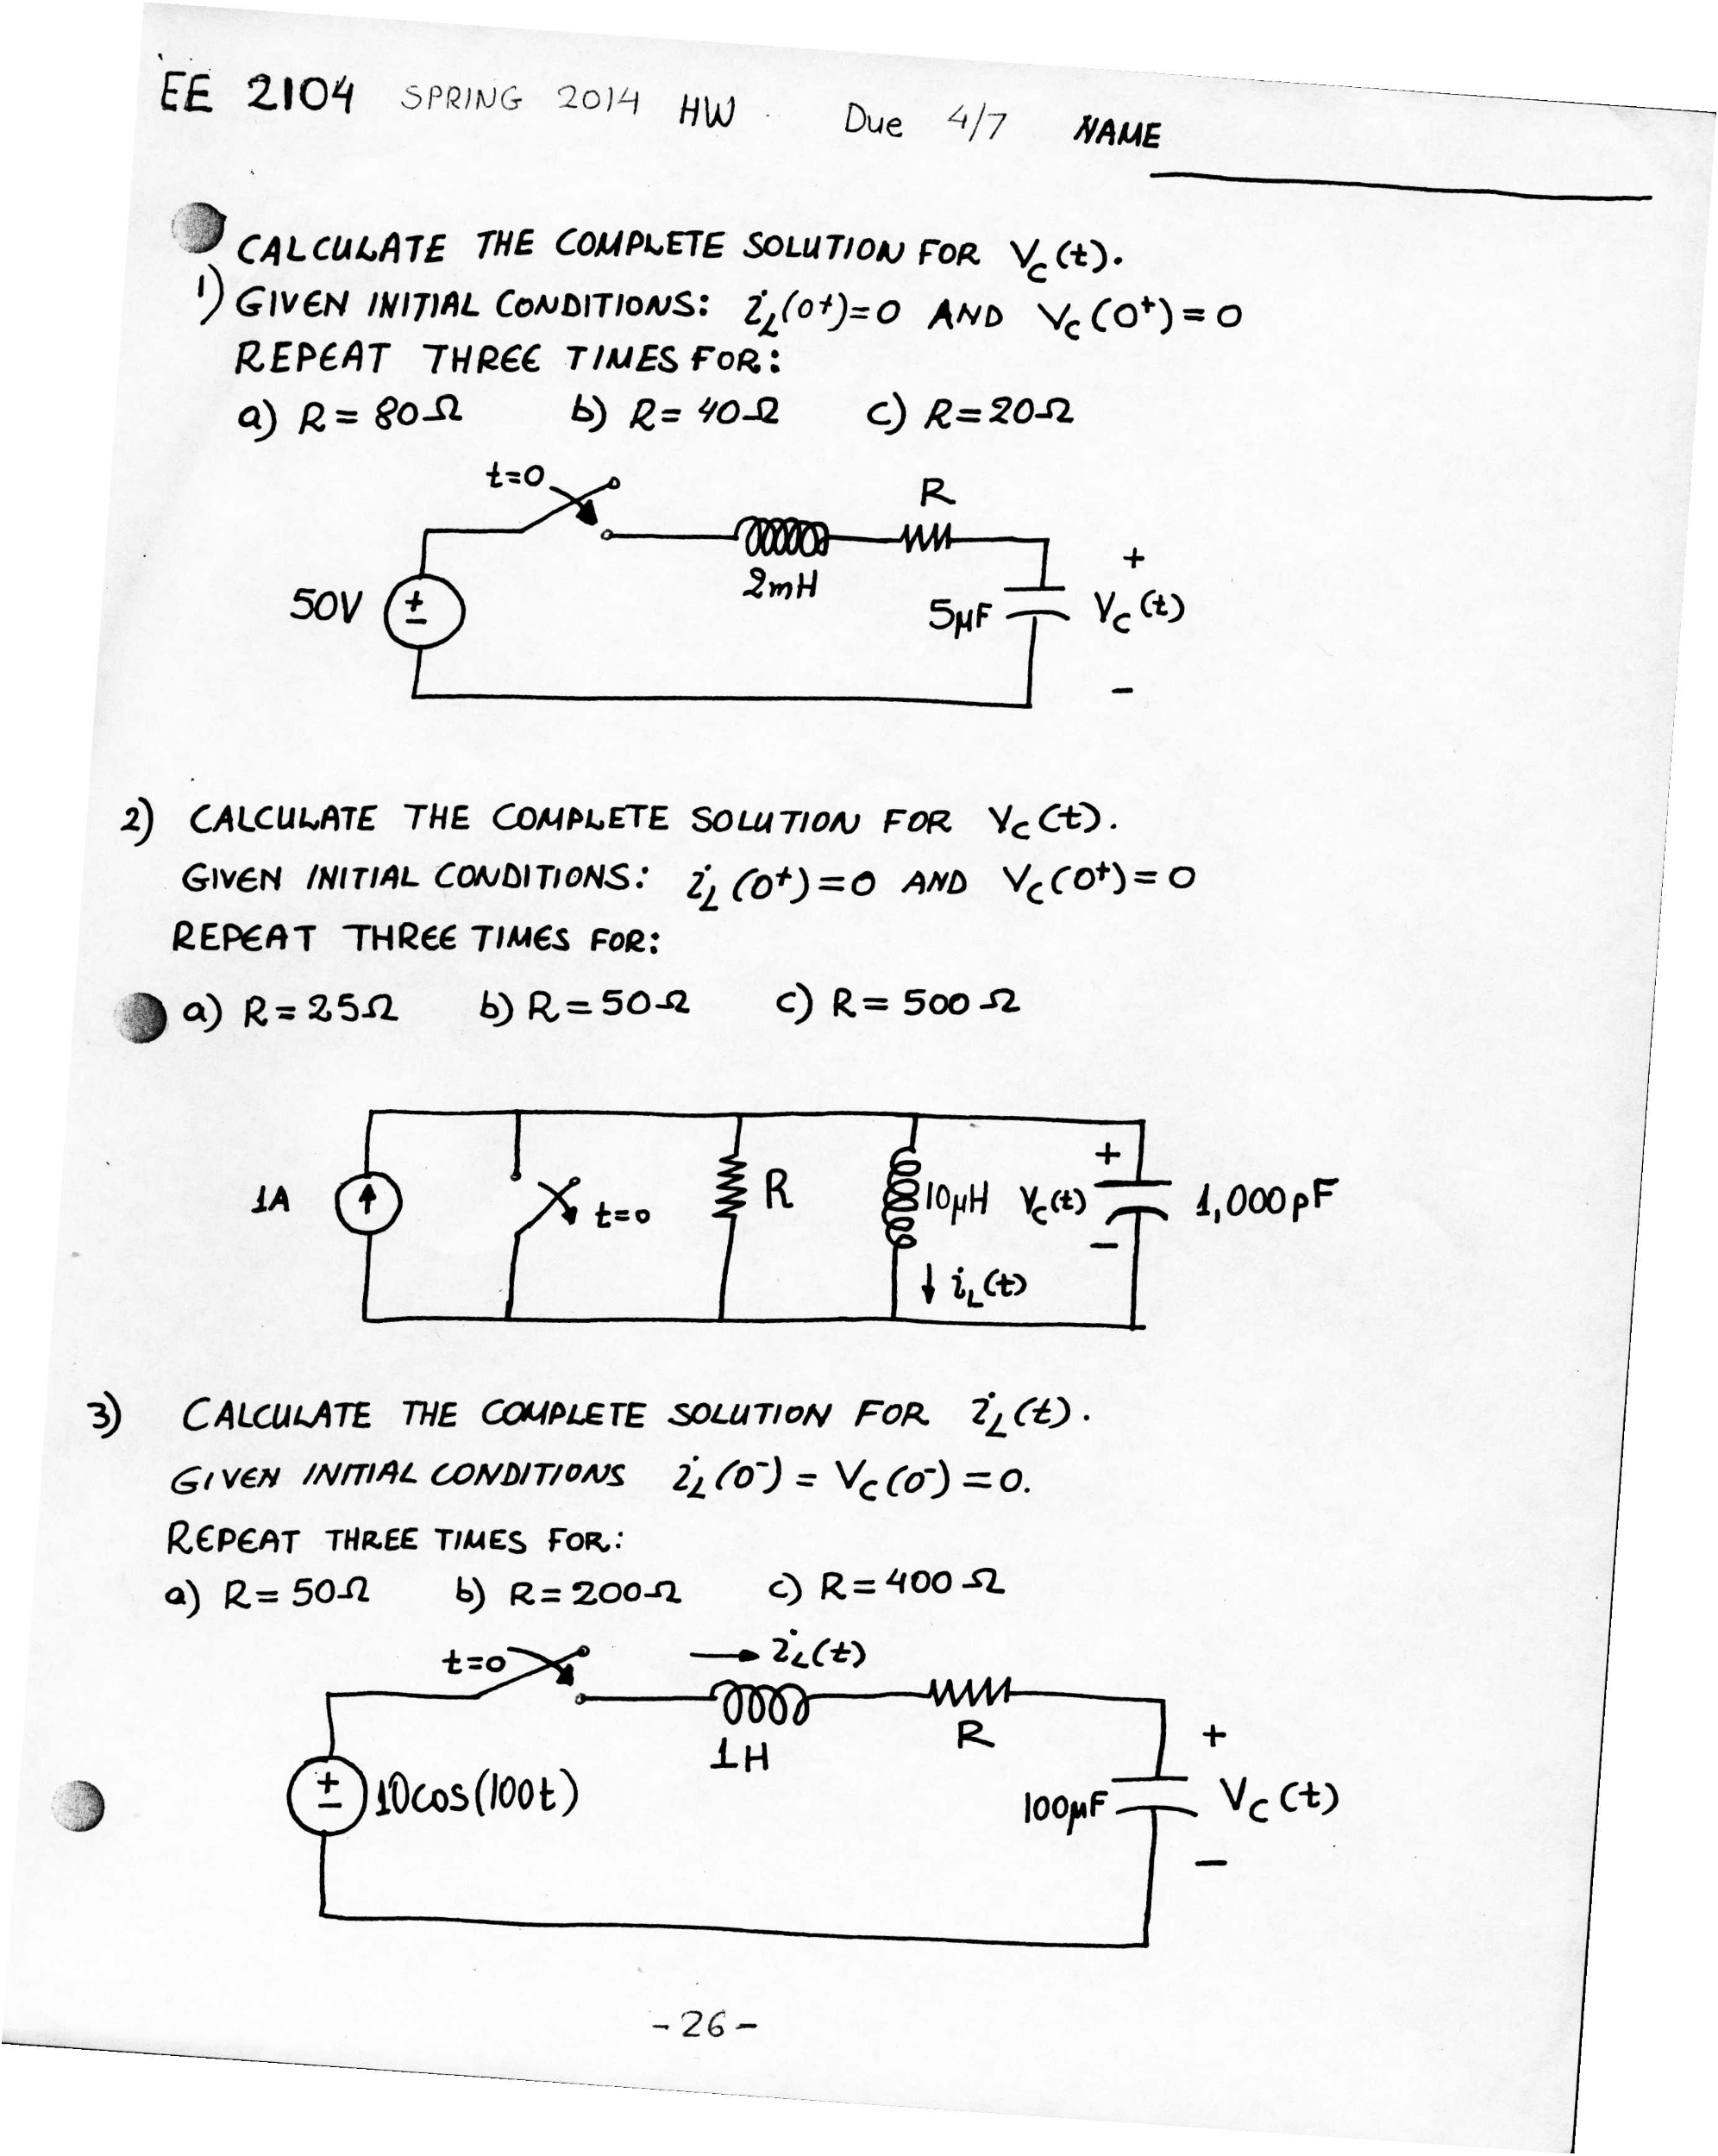 EE 2104 SPRING 2014 HW Due 4/7 NAME
CALCULATE THE COMPLETE SOLUTION FOR Vc(t).
1) GIVEN INITIAL CONDITIONS: iL(0+)=0 AND Vc(0+)=0
REPEAT THREE TIMES FOR:
a) R=80Ω b) R=40Ω c) R=20Ω
t=0
R
2mH
+
50V
+
−
5μF
Vc(t)
−
2) CALCULATE THE COMPLETE SOLUTION FOR Vc(t).
GIVEN INITIAL CONDITIONS: iL(0+)=0 AND Vc(0+)=0
REPEAT THREE TIMES FOR:
a) R=25Ω b) R=50Ω c) R=500Ω
1A
t=0
R
10μH
+
Vc(t)
−
1,000pF
↓ iL(t)
3) CALCULATE THE COMPLETE SOLUTION FOR iL(t).
GIVEN INITIAL CONDITIONS iL(0-) = Vc(0-) =0.
REPEAT THREE TIMES FOR:
a) R=50Ω b) R=200Ω c) R=400Ω
t=0
→ iL(t)
1H
R
+
−
10cos(100t)
100μF
+
Vc(t)
−
-26-